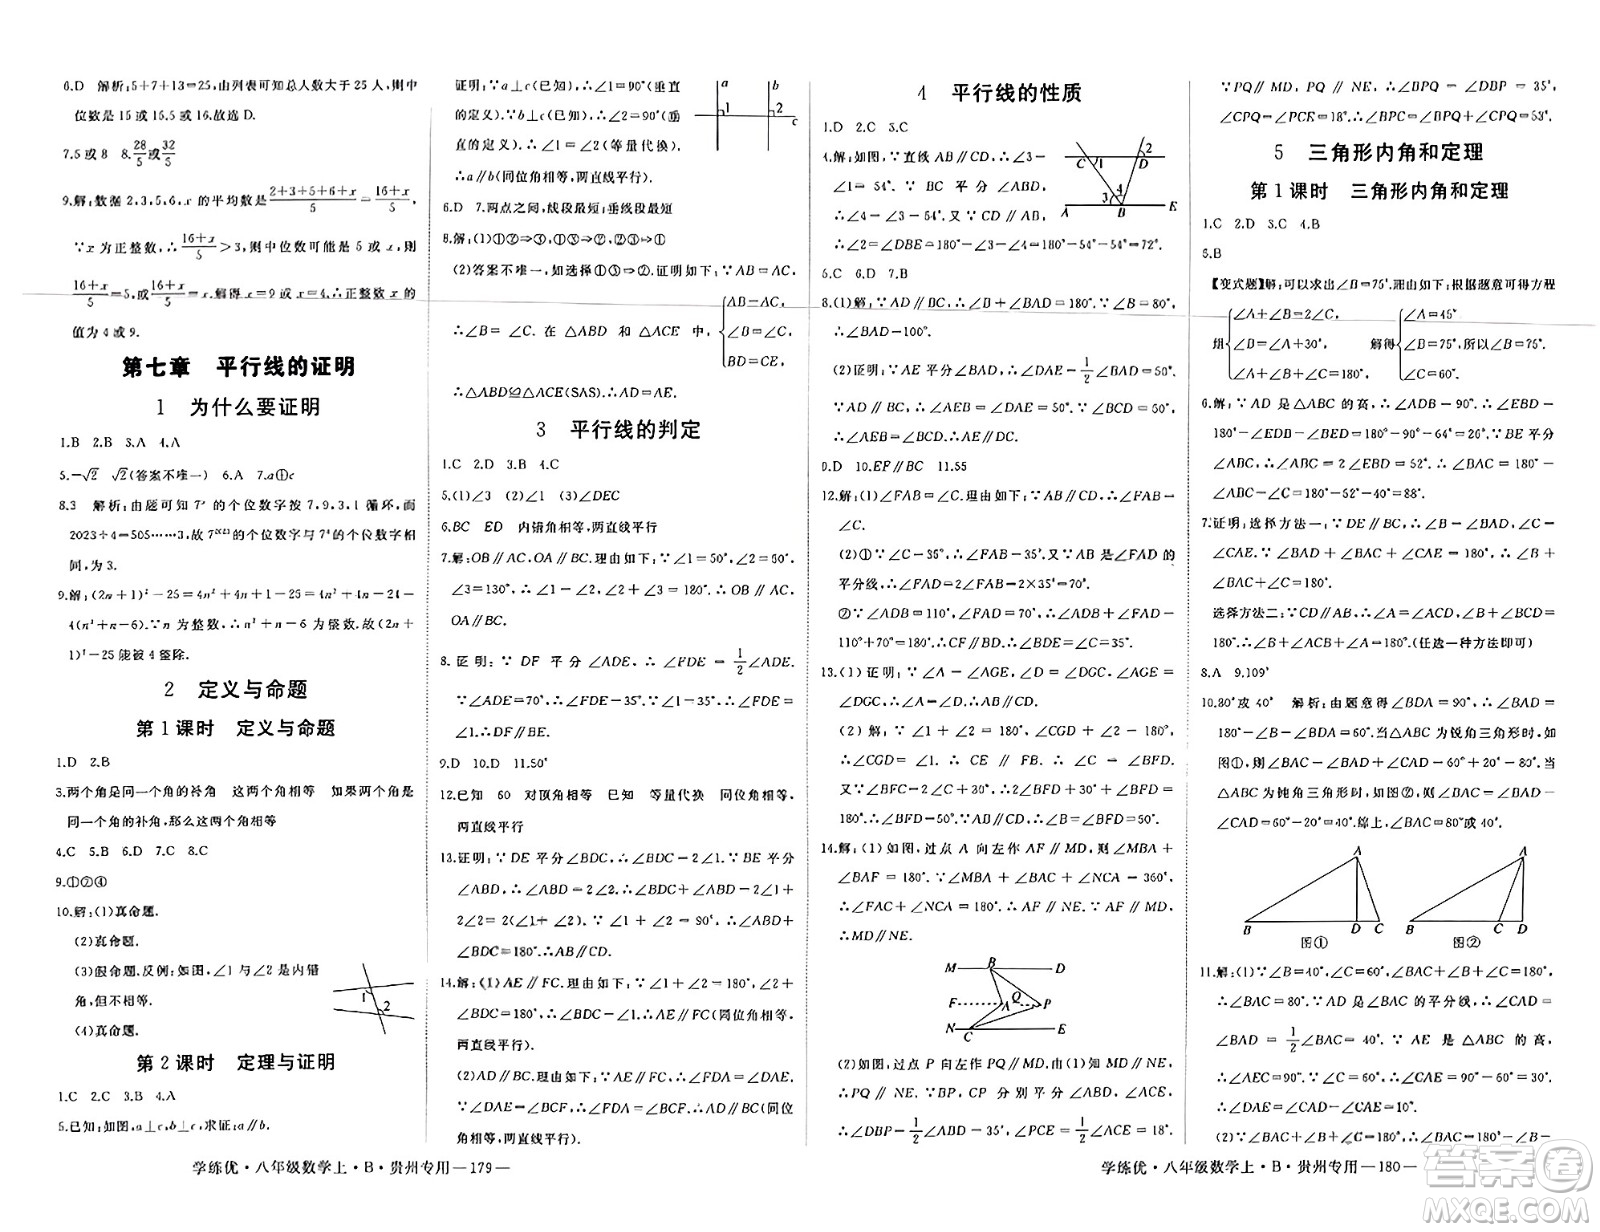 6.D 解析:5+7+13=25,由列表可知总人数大于25人,则中
位数是15或15.5或16.故选D.
7.5或8 8.28/5或32/5
9.解:数据2,3,5,6,x的平均数是(2+3+5+6+x)/5=(16+x)/5,
∵x为正整数,∴(16+x)/5>3,则中位数可能是5或x,∴
(16+x)/5=5,或(16+x)/5=x.解得x=9或x=4.∴正整数x的
值为4或9.
第七章 平行线的证明
1 为什么要证明
1.B 2.B 3.A 4.A
5.-√2 √2(答案不唯一) 6.A 7.a①c
8.3 解析:由题可知7ⁿ的个位数字按7,9,3,1循环,而
2023÷4=505……3,故7²⁰²³的个位数字与7³的个位数字相
同,为3.
9.解:(2n+1)²-25=4n²+4n+1-25=4n²+4n-24=
4(n²+n-6).∵n为整数,∴n²+n-6为整数.故(2n+
1)²-25能被4整除.
2 定义与命题
第1课时 定义与命题
1.D 2.B
3.两个角是同一个角的补角 这两个角相等 如果两个角是
同一个角的补角,那么这两个角相等
4.C 5.B 6.D 7.C 8.C
9.①②④
10.解:(1)真命题.
(2)真命题.
(3)假命题.反例:如图,∠1与∠2是内错
角,但不相等.
(4)真命题.
1
2
第2课时 定理与证明
1.C 2.C 3.B 4.A
5.已知:如图,a⊥c,b⊥c,求证:a∥b.
学练优·八年级数学上·B·贵州专用—179—
证明:∵a⊥c(已知),∴∠1=90°(垂直
的定义).∵b⊥c(已知),∴∠2=90°(垂
直的定义).∴∠1=∠2(等量代换).
∴a∥b(同位角相等,两直线平行).
a b
1 2
c
6.D 7.两点之间,线段最短;垂线段最短
8.解:(1)①②⇒③,①③⇒②,②③⇒①
(2)答案不唯一,如选择①③⇒②.证明如下:∵AB=AC,
∴∠B=∠C.在△ABD和△ACE中,{AB=AC,
∠B=∠C,
BD=CE,
∴△ABD≌△ACE(SAS).∴AD=AE.
3 平行线的判定
1.C 2.D 3.B 4.C
5.(1)∠3 (2)∠C (3)∠DEC
6.BC ED 内错角相等,两直线平行
7.解:OB∥AC,OA∥BC.理由如下:∵∠1=50°,∠2=50°,
∠3=130°,∴∠1=∠2,∠2+∠3=180°.∴OB∥AC,
OA∥BC.
8.证明:∵DF平分∠ADE,∴∠FDE=1/2∠ADE.
∵∠ADE=70°,∴∠FDE=35°.∵∠1=35°,∴∠FDE=
∠1.∴DF∥BE.
9.D 10.D 11.50°
12.已知 60 对顶角相等 已知 等量代换 同位角相等,
两直线平行
13.证明:∵DE平分∠BDC,∴∠BDC=2∠1.∵BE平分
∠ABD,∴∠ABD=2∠2.∴∠ABD+∠BDC=2∠1+
2∠2=2(∠1+∠2).∵∠1+∠2=90°,∴∠ABD+
∠BDC=180°.∴AB∥CD.
14.解:(1)AE∥FC.理由如下:∵∠1+∠2=180°,∠2+
∠BDC=180°,∴∠1=∠BDC.∴AE∥FC(同位角相等,
两直线平行).
(2)AD∥BC.理由如下:∵AE∥FC,∴∠DAE=∠FDA.
∵∠DAE=∠BCF,∴∠FDA=∠BCF.∴AD∥BC(同位
角相等,两直线平行).
4 平行线的性质
1.D 2.C 3.C
4.解:如图,∵直线AB∥CD,∴∠3=
∠1=54°.∵BC平分∠ABD,
∴∠4=∠3=54°.又∵CD∥AB,
∴∠2=∠DBE=180°-∠3-∠4=180°-54°-54°=72°.
C 1 D 2
3 4
A B E
5.C 6.D 7.B
8.(1)解:∵AD∥BC,∴∠B+∠BAD=180°.∵∠B=80°,
∴∠BAD=100°.
(2)证明:∵AE平分∠BAD,∴∠DAE=1/2∠BAD=50°.
∵AD∥BC,∴∠AEB=∠DAE=50°.∵∠BCD=50°,
∴∠AEB=∠BCD.∴AE∥DC.
9.D 10.EF∥BC 11.55
12.解:(1)∠FAB=∠C.理由如下:∵CD∥AB,∴∠FAB=
∠C.
(2)①∵∠C=35°,∴∠FAB=∠C=35°.又∵AB是∠FAD的
平分线,∴∠FAD=2∠FAB=2×35°=70°.
②∵∠ADB=110°,∠FAD=70°,∴∠FAD+∠ADB=
110°+70°=180°.∴CF∥BD.∴∠BDE=∠C=35°.
13.(1)证明:∵∠A=∠AGE,∠D=∠DGC,∠AGE=
∠DGC,∴∠A=∠D.∴AB∥CD.
(2)解:∵∠1+∠2=180°,∠CGD+∠2=180°,
∴∠CGD=∠1.∴CE∥FB.∴∠C=∠BFD.
又∵∠BFC=2∠C+30°,∠BFC+∠BFD=
180°.∴∠BFD=50°.∵AB∥CD,∴∠B=∠BFD=50°.
14.解:(1)如图,过点A向左作AF∥MD,则∠MBA+
∠BAF=180°.∵∠MBA+∠BAC+∠NCA=360°,
∴∠FAC+∠NCA=360°-180°=180°.∴AF∥NE.∵AF∥MD,
∴MD∥NE.
M B D
F A Q P
N C E
(2)如图,过点P向左作PQ∥MD,由(1)知MD∥NE,
∴PQ∥NE.∵BP,CP分别平分∠ABD,∠ACE,
∴∠DBP=1/2∠ABD=35°,∠PCE=1/2∠ACE=18°.
∵PQ∥MD,PQ∥NE,∴∠BPQ=∠DBP=35°,
∠CPQ=∠PCE=18°.∴∠BPC=∠BPQ+∠CPQ=53°.
5 三角形内角和定理
第1课时 三角形内角和定理
1.C 2.D 3.C 4.B
5.B
【变式题】解:可以求出∠B=75°.理由如下:根据题意可得方程
组{∠A+∠B=2∠C,
∠B=∠A+30°,
∠A+∠B+∠C=180°, 解得{∠A=45°,
∠B=75°,所以∠B=75°.
∠C=60°.
6.解:∵AD是△ABC的高,∴∠ADB=90°.∴∠EBD=
180°-∠EDB-∠BED=180°-90°-64°=26°.∵BE平分
∠ABC,∴∠ABC=2∠EBD=52°.∴∠BAC=180°-∠ABC-∠C=
180°-52°-40°=88°.
7.证明:选择方法一:∵DE∥BC,∴∠B=∠BAD,∠C=
∠CAE.∵∠BAD+∠BAC+∠CAE=180°,∴∠B+
∠BAC+∠C=180°.
选择方法二:∵CD∥AB,∴∠A=∠ACD,∠B+∠BCD=
180°.∴∠B+∠ACB+∠A=180°.(任选一种方法即可)
8.A 9.109°
10.80°或40° 解析:由题意可得∠BDA=90°,∴∠BAD=
180°-∠B-∠BDA=60°.当△ABC为锐角三角形时,如
图①,∠BAC=∠BAD+∠CAD=60°+20°=80°.当
△ABC为钝角三角形时,如图②,∠BAC=∠BAD-
∠CAD=60°-20°=40°.综上,∠BAC=80°或40°.
A A
B D C B C D
图① 图②
11.解:(1)∵∠B=40°,∠C=60°,∠BAC+∠B+∠C=180°,
∴∠BAC=80°.∵AD是∠BAC的平分线,∴∠CAD=
∠BAD=1/2∠BAC=40°.∵AE是△ABC的高,
∴∠AEC=90°.∴∠CAE=180°-∠AEC-∠C=30°.
∴∠DAE=∠CAD-∠CAE=10°.
学练优·八年级数学上·B·贵州专用—180—
答案圈
MXQE.COM